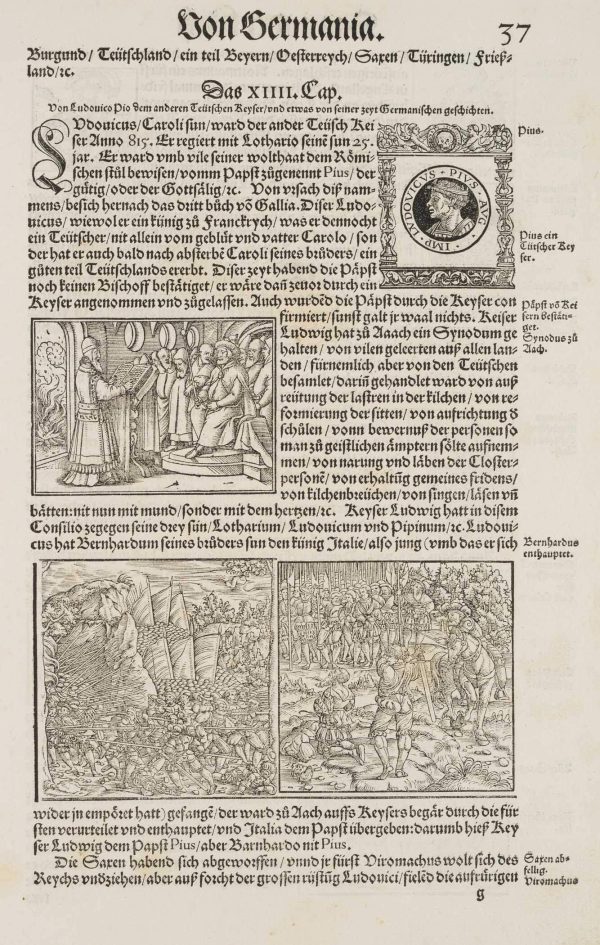 Von Germania.
37
Burgund/ Teütschland/ ein teil Beyern/ Oesterreych/ Saxen/ Türingen/ Frieß-
land/ ꝛc.
Das XIIII. Cap.
Von Ludouico Pio dem anderen Teütschen Keyser/ vnd etwas von seiner zeyt Germanischen geschichten.
LVdouicus/ Caroli sun/ ward der ander Teüsch Kei
ser Anno 815. Er regiert mit Lothario seinē sun 25.
jar. Er ward vmb vile seiner wolthaat dem Römi-
schen stůl bewisen/ vomm Papst zůgenennt Pius/ der
gütig/ oder der Gottsälig/ ꝛc. Von vrsach diß nam-
mens/ besich hernach das dritt bůch vō Gallia. Diser Ludo-
uicus/ wiewol er ein künig zů Franckrych/ was er dennocht
ein Teütscher/ nit allein vom geblüt vnd vatter Carolo/ son
der hat er auch bald nach absterbē Caroli seines brüders/ ein
gůten teil Teütschlands ererbt. Diser zeyt habend die Päpst
noch keinen Bischoff bestätiget/ er wäre dañ zeuor durch ein
Keyser angenommen vnd zůgelassen. Auch wurdēd die Päpst durch die Keyser con
firmiert/ sunst galt jr waal nichts. Keiser
Ludwig hat zů Aaach ein Synodum ge
halten/ von vilen geleerten auß allen lan-
den/ fürnemlich aber von den Teütschen
besamlet/ dariñ gehandlet ward von auß
reütung der lastren in der kilchen/ von re-
formierung der sitten/ von aufrichtung d̄
schůlen/ vonn bewernuß der personen so
man zů geistlichen ämptern sölte aufnem-
men/ von narung vnd läben der Closter-
personē/ von erhaltūg gemeines fridens/
von kilchenbreüchen/ von singen/ läsen vñ
bätten: nit nun mit mund/ sonder mit dem hertzen/ ꝛc. Keyser Ludwig hatt in disem
Consilio zegegen seine drey sün/ Lotharium/ Ludouicum vnd Pipinum/ ꝛc. Ludoui-
cus hat Bernhardum seines brůders sun den künig Italie/ also jung (vmb das er sich
wider jn empöret hatt) gefangē/ der ward zů Aach auffs Keysers begär durch die für
sten verurteilet vnd enthauptet/ vnd Italia dem Papst übergeben: darumb hieß Key
ser Ludwig dem Papst Pius/ aber Barnhardo nit Pius.
Die Saxen habend sich abgeworffen/ vnnd jr fürst Viromachus wolt sich des
Reychs vndziehen/ aber auß forcht der grossen rüstūg Ludouici/ fielēd die aufrürigen
g
IMP. LVDOVICVS PIVS AVG
Pius.
Pius ein
Tütscher Key
ser.
Päpst vō Kei
sern bestäti-
get.
Synodus zů
Aach.
Bernhardus
enthauptet.
Saxen ab-
fellig.
Viromachus